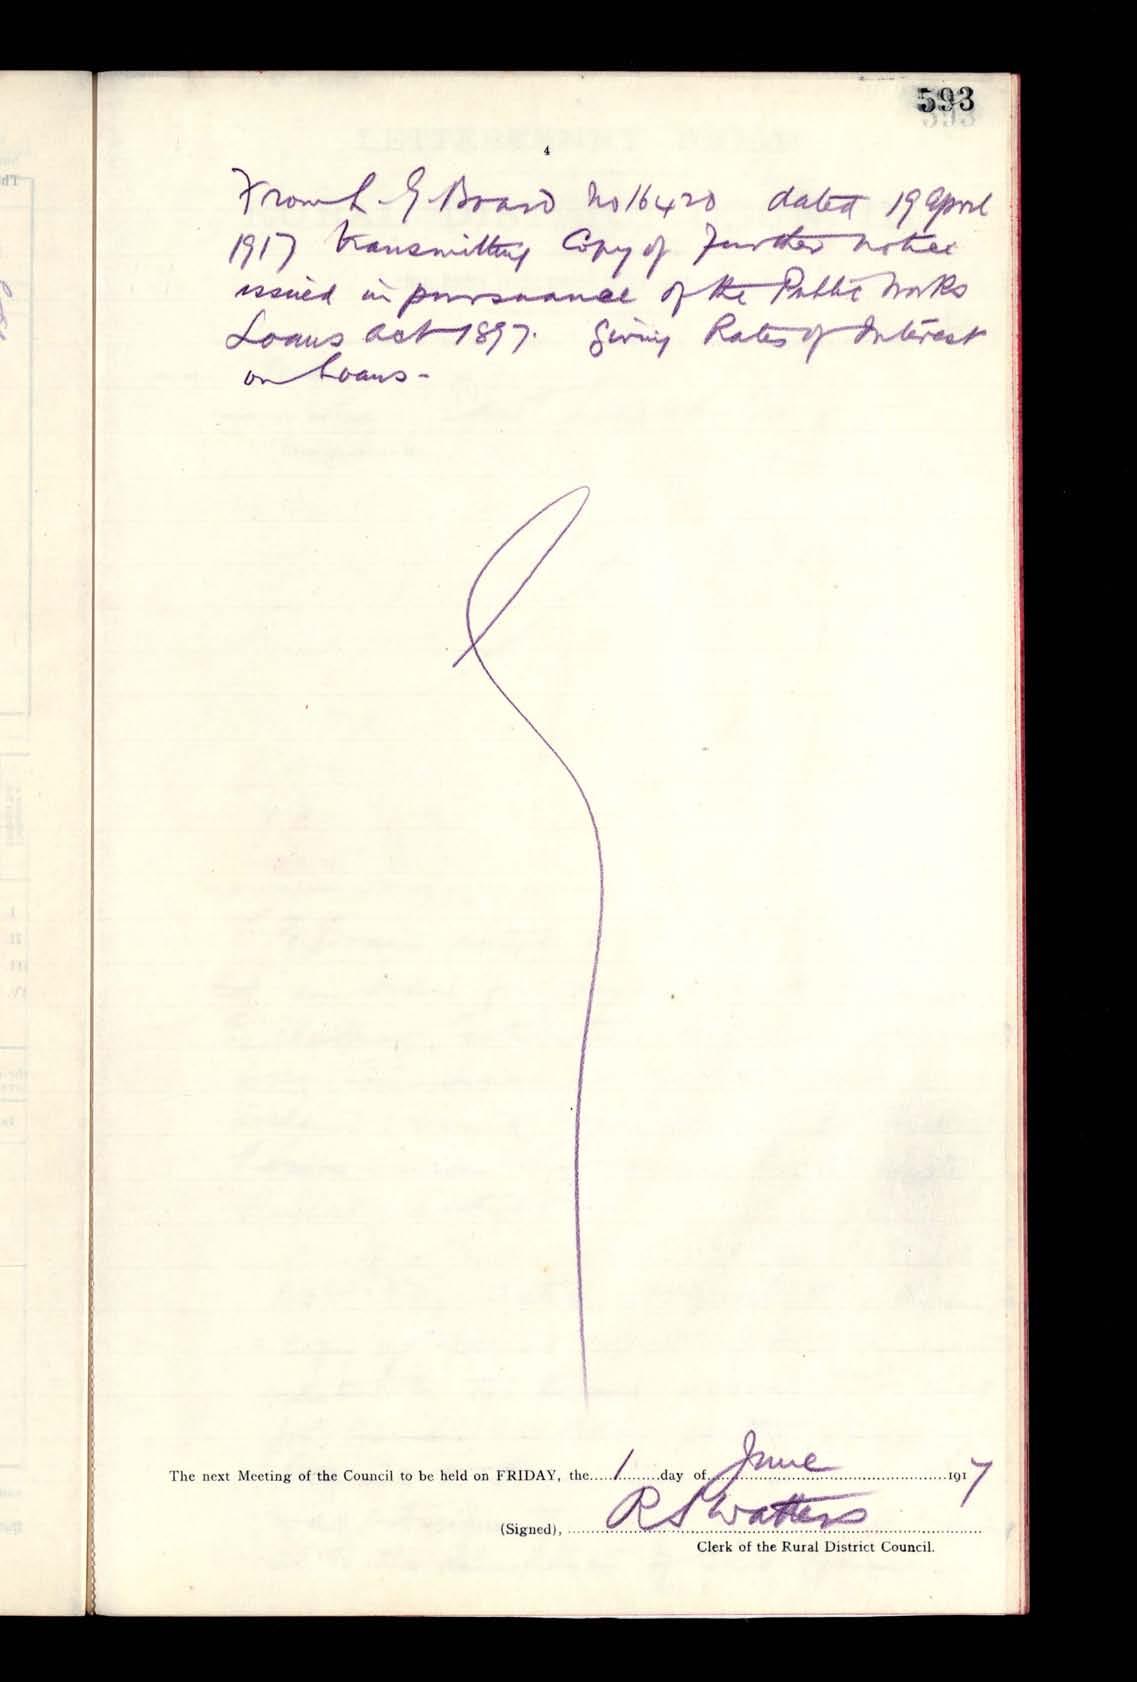 593
4
From L G Board No 16420 dated 19 April
1917 transmitting Copy of Further notice
issued in pursuance of the Public Works
Loans Act 1897. giving Rates of Interest
on Loans -
The next Meeting of the Council to be held on FRIDAY, the.....1........day of..June..........................1917
(Signed), R S Watters
Clerk of the Rural District Council.